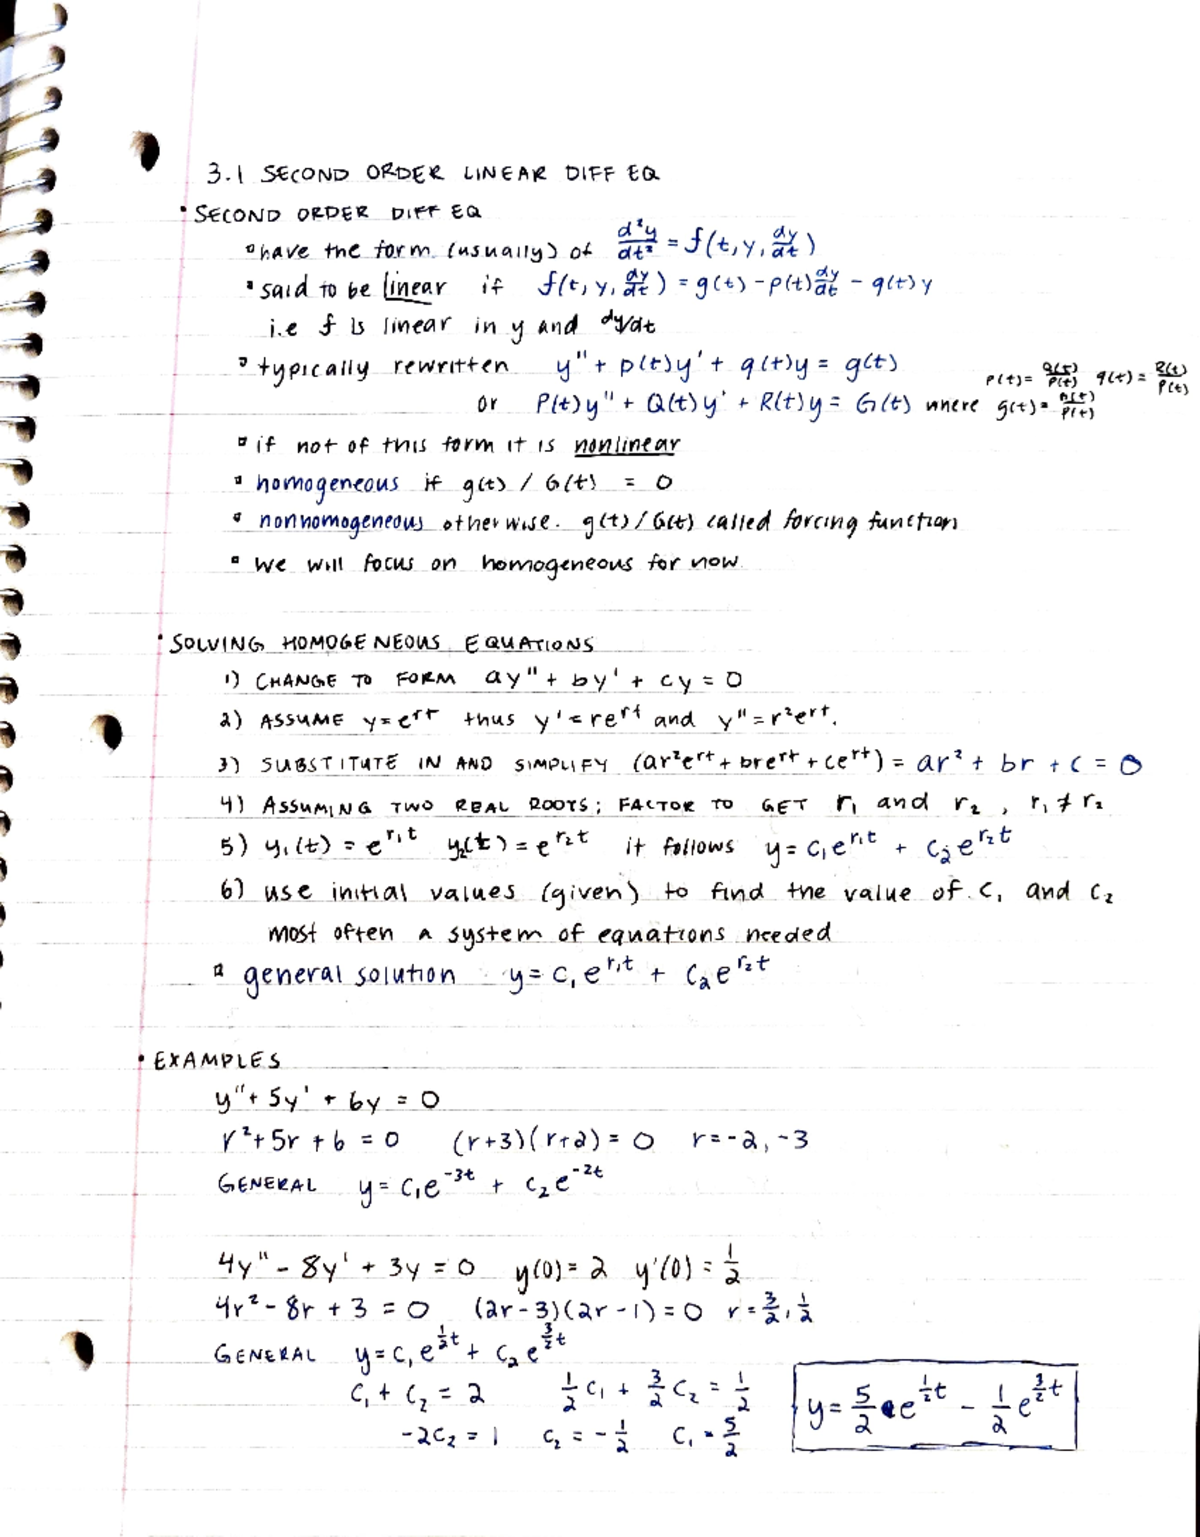 3.1 SECOND ORDER LINEAR DIFF EQ
• SECOND ORDER DIFF EQ
▫ have the form (usually) of d²y/dt² = f(t, y, dy/dt)
▫ said to be linear if f(t, y, dy/dt) = g(t) - p(t)dy/dt - q(t)y
i.e f is linear in y and dy/dt
▫ typically rewritten y" + p(t)y' + q(t)y = g(t)
or P(t)y" + Q(t)y' + R(t)y = G(t) where p(t) = Q(t)/P(t) q(t) = R(t)/P(t) g(t) = G(t)/P(t)
▫ if not of this form it is nonlinear
▫ homogeneous if g(t) / G(t) = 0
▫ nonhomogeneous otherwise. g(t) / G(t) called forcing function
▫ we will focus on homogeneous for now.
• SOLVING HOMOGENEOUS EQUATIONS
1) CHANGE TO FORM ay" + by' + cy = 0
2) ASSUME y = e^rt thus y' = re^rt and y" = r²e^rt.
3) SUBSTITUTE IN AND SIMPLIFY (ar²e^rt + bre^rt + ce^rt) = ar² + br + c = 0
4) ASSUMING TWO REAL ROOTS; FACTOR TO GET r₁ and r₂, r₁ ≠ r₂
5) y₁(t) = e^r₁t y₂(t) = e^r₂t it follows y = c₁e^r₁t + c₂e^r₂t
6) use initial values (given) to find the value of c₁ and c₂
most often a system of equations needed
▫ general solution y = c₁e^r₁t + c₂e^r₂t
• EXAMPLES
y" + 5y' + 6y = 0
r² + 5r + 6 = 0 (r+3)(r+2) = 0 r = -2, -3
GENERAL y = c₁e^-3t + c₂e^-2t
4y" - 8y' + 3y = 0 y(0) = 2 y'(0) = 1/2
4r² - 8r + 3 = 0 (2r - 3)(2r - 1) = 0 r = 3/2, 1/2
GENERAL y = c₁e^1/2t + c₂e^3/2t
c₁ + c₂ = 2 1/2c₁ + 3/2c₂ = 1/2
-2c₂ = 1 c₂ = -1/2 c₁ = 5/2
y = 5/2e^1/2t - 1/2e^3/2t